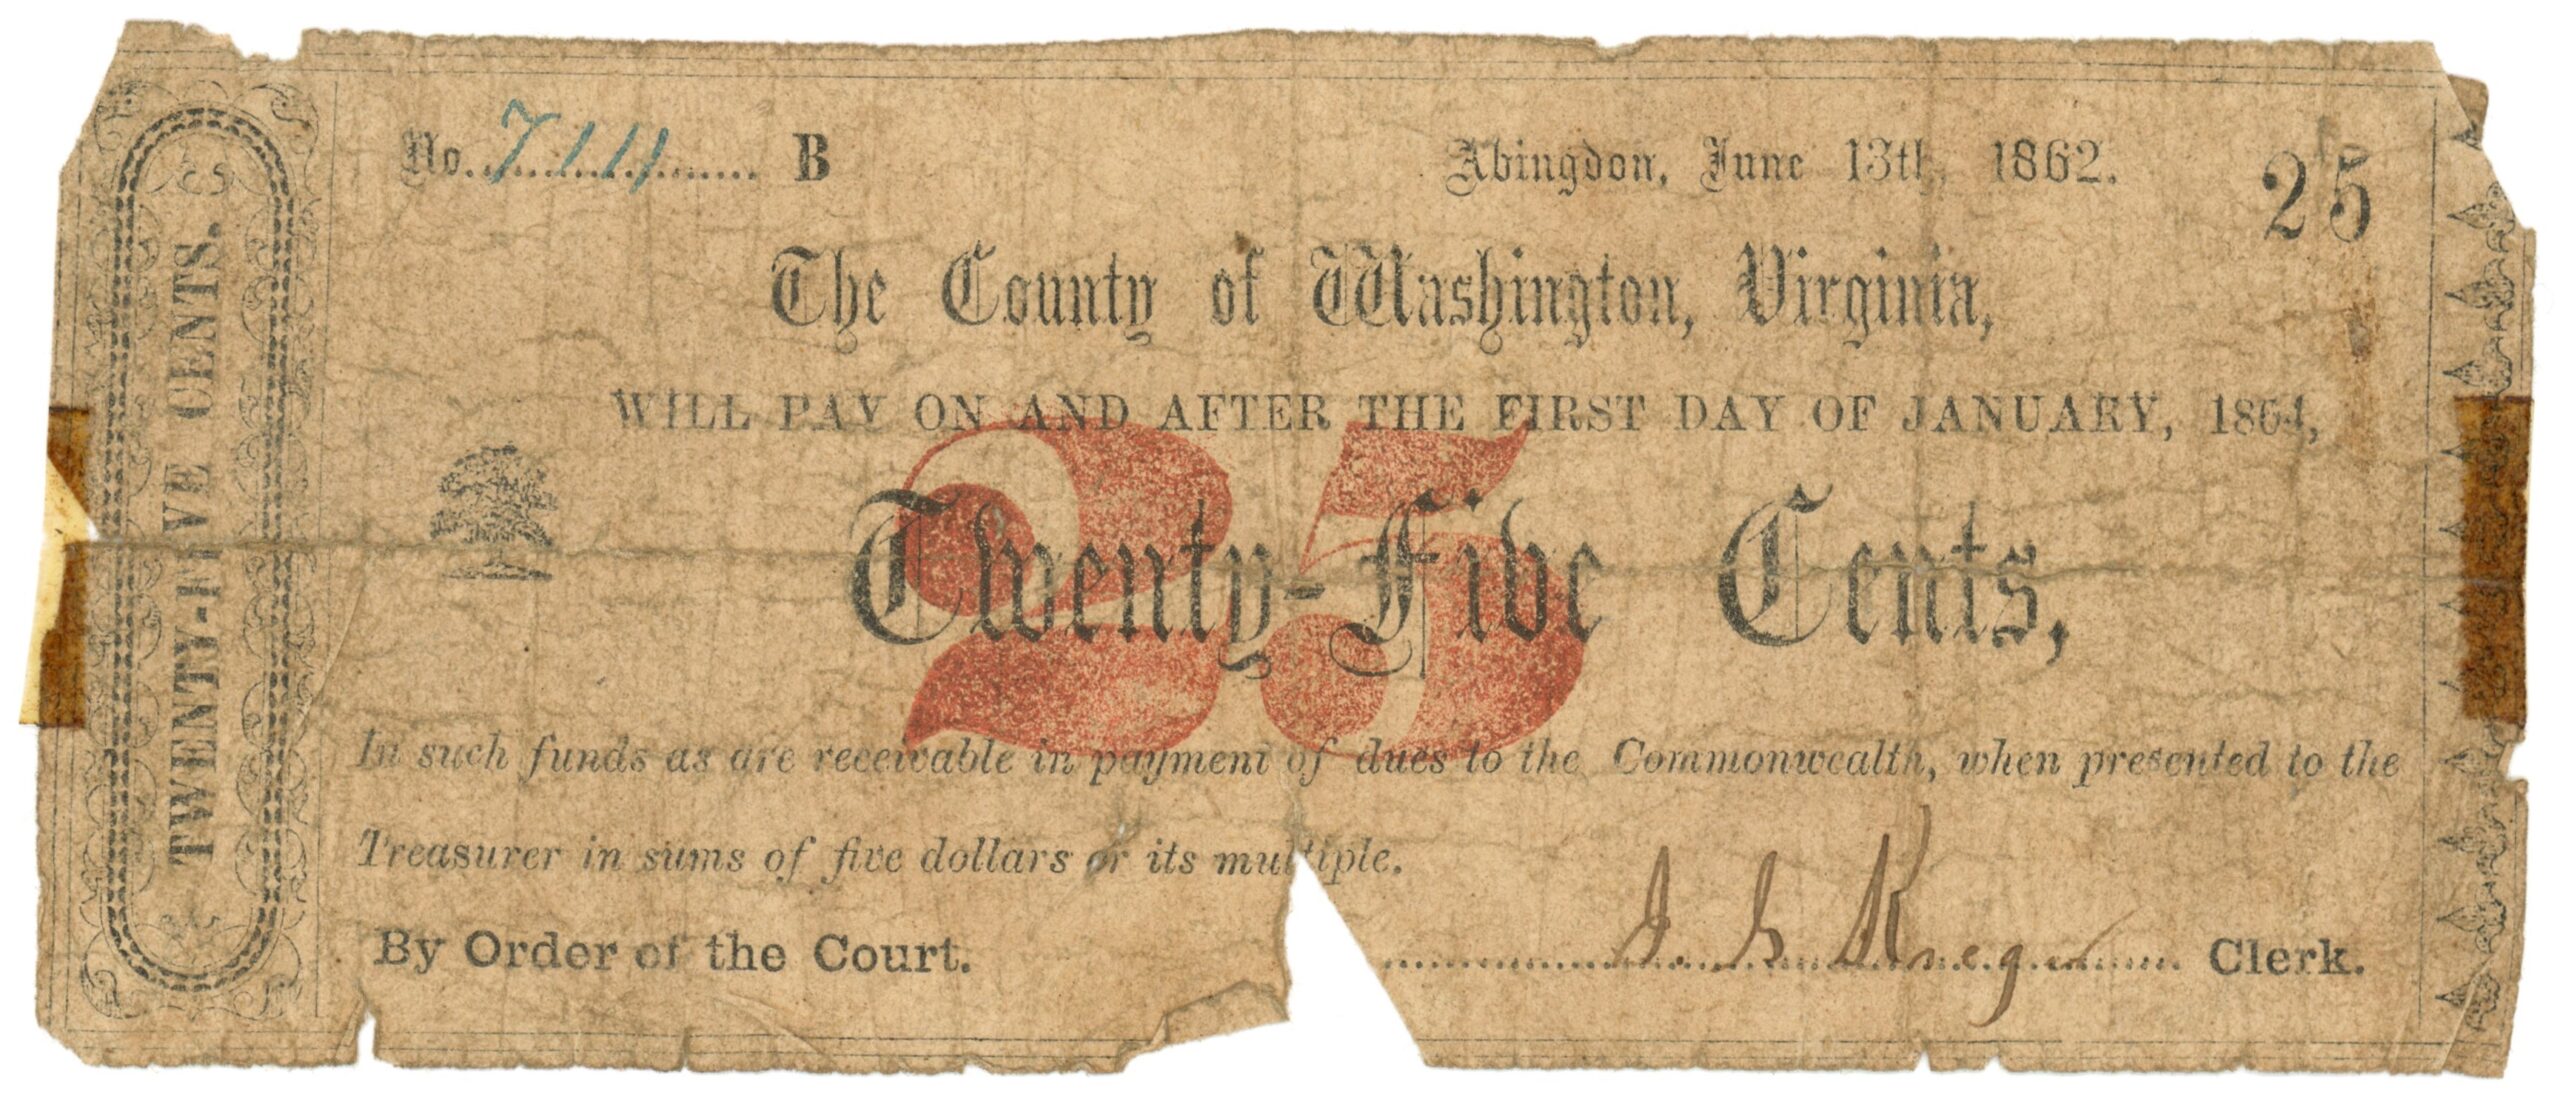 No. 7111 B
Abingdon, June 13th, 1862.
25
The County of Washington, Virginia,
WILL PAY ON AND AFTER THE FIRST DAY OF JANUARY, 1864,
25
Twenty-Five Cents,
In such funds as are receivable in payment of dues to the Commonwealth, when presented to the
Treasurer in sums of five dollars or its multiple.
By Order of the Court.
J. G. Kreger Clerk.
TWENTY-FIVE CENTS.